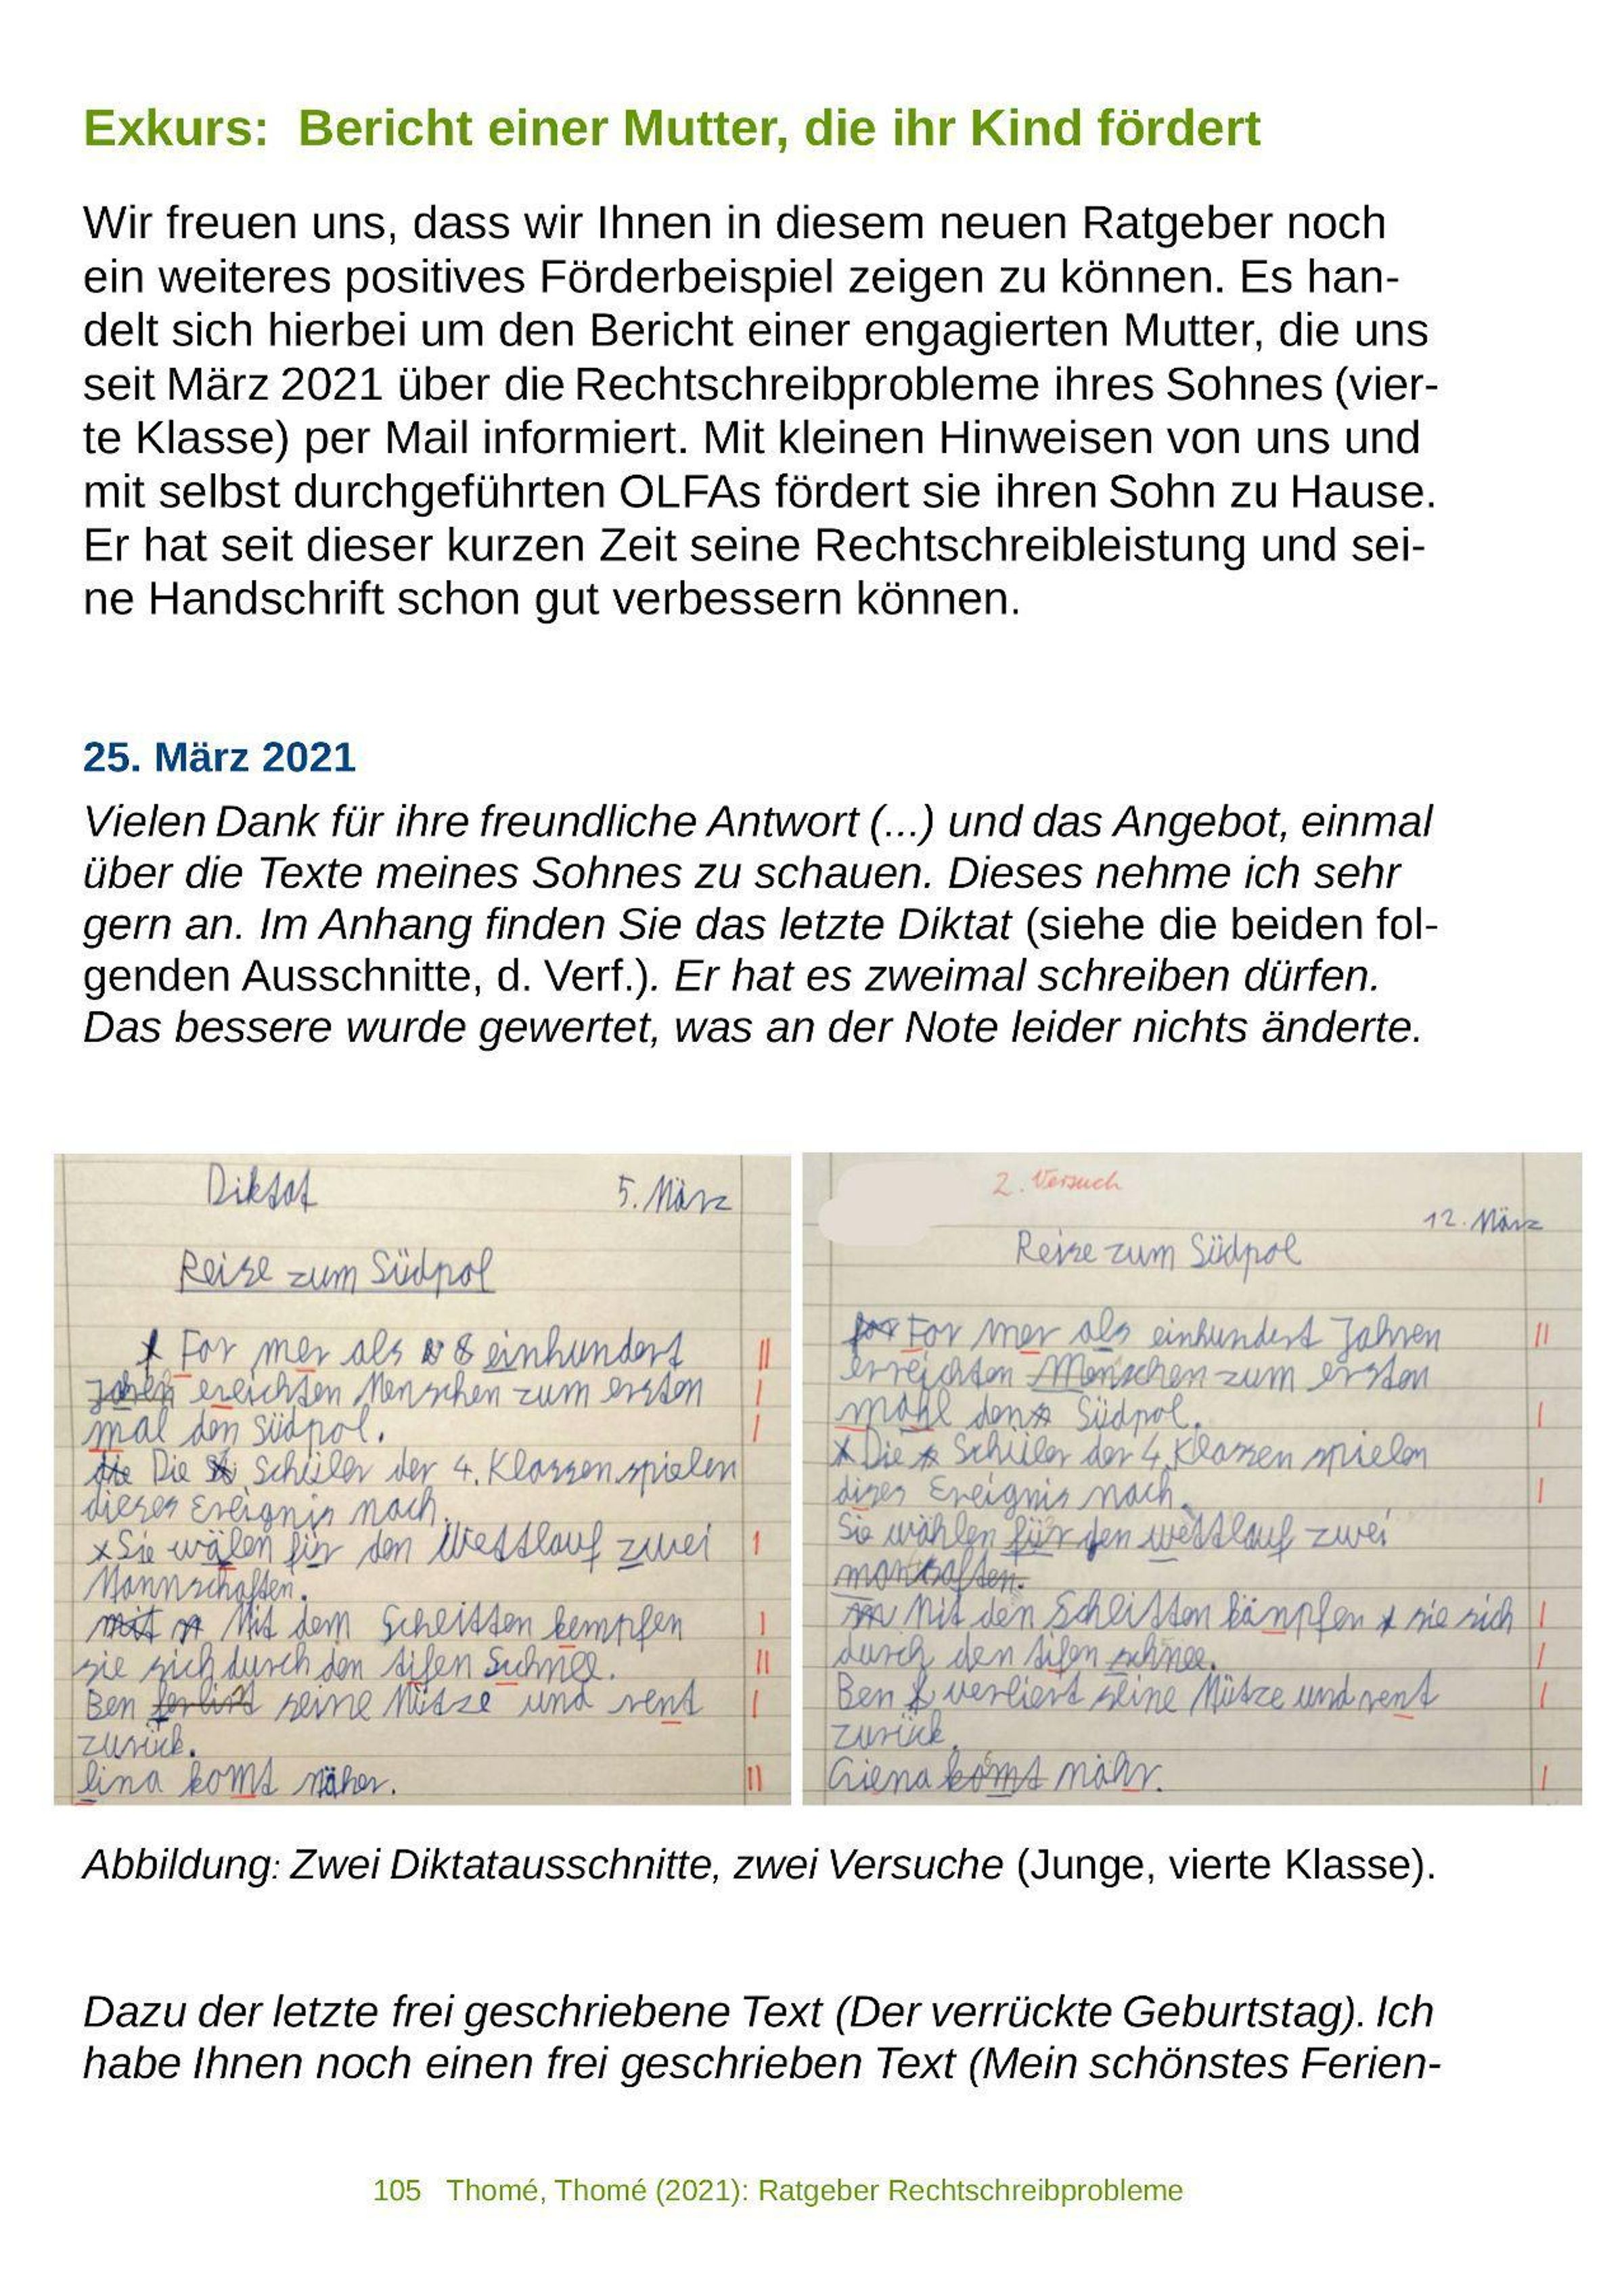 Exkurs: Bericht einer Mutter, die ihr Kind fördert
Wir freuen uns, dass wir Ihnen in diesem neuen Ratgeber noch
ein weiteres positives Förderbeispiel zeigen zu können. Es han-
delt sich hierbei um den Bericht einer engagierten Mutter, die uns
seit März 2021 über die Rechtschreibprobleme ihres Sohnes (vier-
te Klasse) per Mail informiert. Mit kleinen Hinweisen von uns und
mit selbst durchgeführten OLFAs fördert sie ihren Sohn zu Hause.
Er hat seit dieser kurzen Zeit seine Rechtschreibleistung und sei-
ne Handschrift schon gut verbessern können.
25. März 2021
Vielen Dank für ihre freundliche Antwort (...) und das Angebot, einmal
über die Texte meines Sohnes zu schauen. Dieses nehme ich sehr
gern an. Im Anhang finden Sie das letzte Diktat (siehe die beiden fol-
genden Ausschnitte, d. Verf.). Er hat es zweimal schreiben dürfen.
Das bessere wurde gewertet, was an der Note leider nichts änderte.
Diktat 5. März
Reise zum Südpol
For mer als einhundert
Jahren ereichten Menschen zum ersten
mal den Südpol.
Die Schüler der 4. Klassen spielen
dieses Ereignis nach.
Sie wälen für den Wettlauf zwei
Mannschaften.
Mit dem Scheitten kempfen
sie sich durch den tifen Schnee.
Ben ferlirt seine Mütze und rent
zurück.
lina komt näher.
2. Versuch
12. März
Reise zum Südpol
For mer als einhundert Jahren
erreichten Menschen zum ersten
mahl den Südpol.
Die Schüler der 4. Klassen spielen
dises Ereignis nach.
Sie wählen für den wettlauf zwei
Mit den Scheitten kämpfen sie sich
durch den tifen schnee.
Ben verliert seine Mütze und rent
zurück.
komt nähr.
Abbildung: Zwei Diktatausschnitte, zwei Versuche (Junge, vierte Klasse).
Dazu der letzte frei geschriebene Text (Der verrückte Geburtstag). Ich
habe Ihnen noch einen frei geschrieben Text (Mein schönstes Ferien-
105 Thomé, Thomé (2021): Ratgeber Rechtschreibprobleme